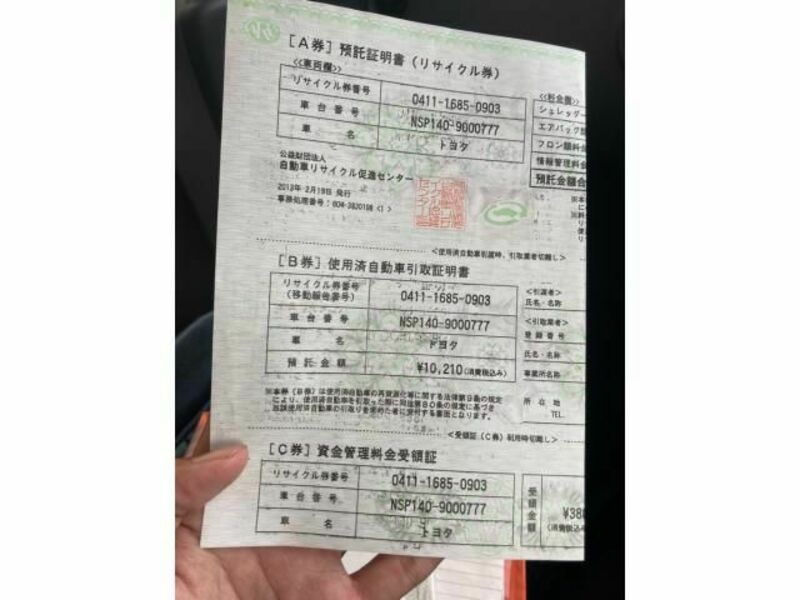 [A券] 預託証明書 (リサイクル券)
<<車両欄>>
リサイクル券番号 0411-1685-0903
車台番号 NSP140-9000777
車名 トヨタ
<<料金欄>>
シュレッダー
エアバッグ類
フロン類料金
情報管理料金
預託金額合
公益財団法人
自動車リサイクル促進センター
2013年 2月19日 発行
事務処理番号:604-3820198 <1>
<使用済自動車引渡時、引取業者切離し>
[B券] 使用済自動車引取証明書
リサイクル券番号
(移動報告番号) 0411-1685-0903
車台番号 NSP140-9000777
車名 トヨタ
預託金額 ¥10,210(消費税込み)
<引渡者>
氏名・名称
<引取業者>
登録番号
氏名・名称
事業所名称
所在地
TEL.
※本券(B券)は使用済自動車の再資源化等に関する法律第9条の規定
により、使用済自動車を引取った際に同法第80条の規定に基づき
当該使用済自動車の引取りを求めた者に交付する書面となります。
<受領証(C券)利用時切離し>
[C券] 資金管理料金受領証
リサイクル券番号 0411-1685-0903
車台番号 NSP140-9000777
車名 トヨタ
受領金額 ¥380
(消費税込み